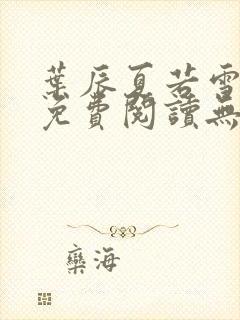 葉辰夏若雪
免費閱讀無
欒海